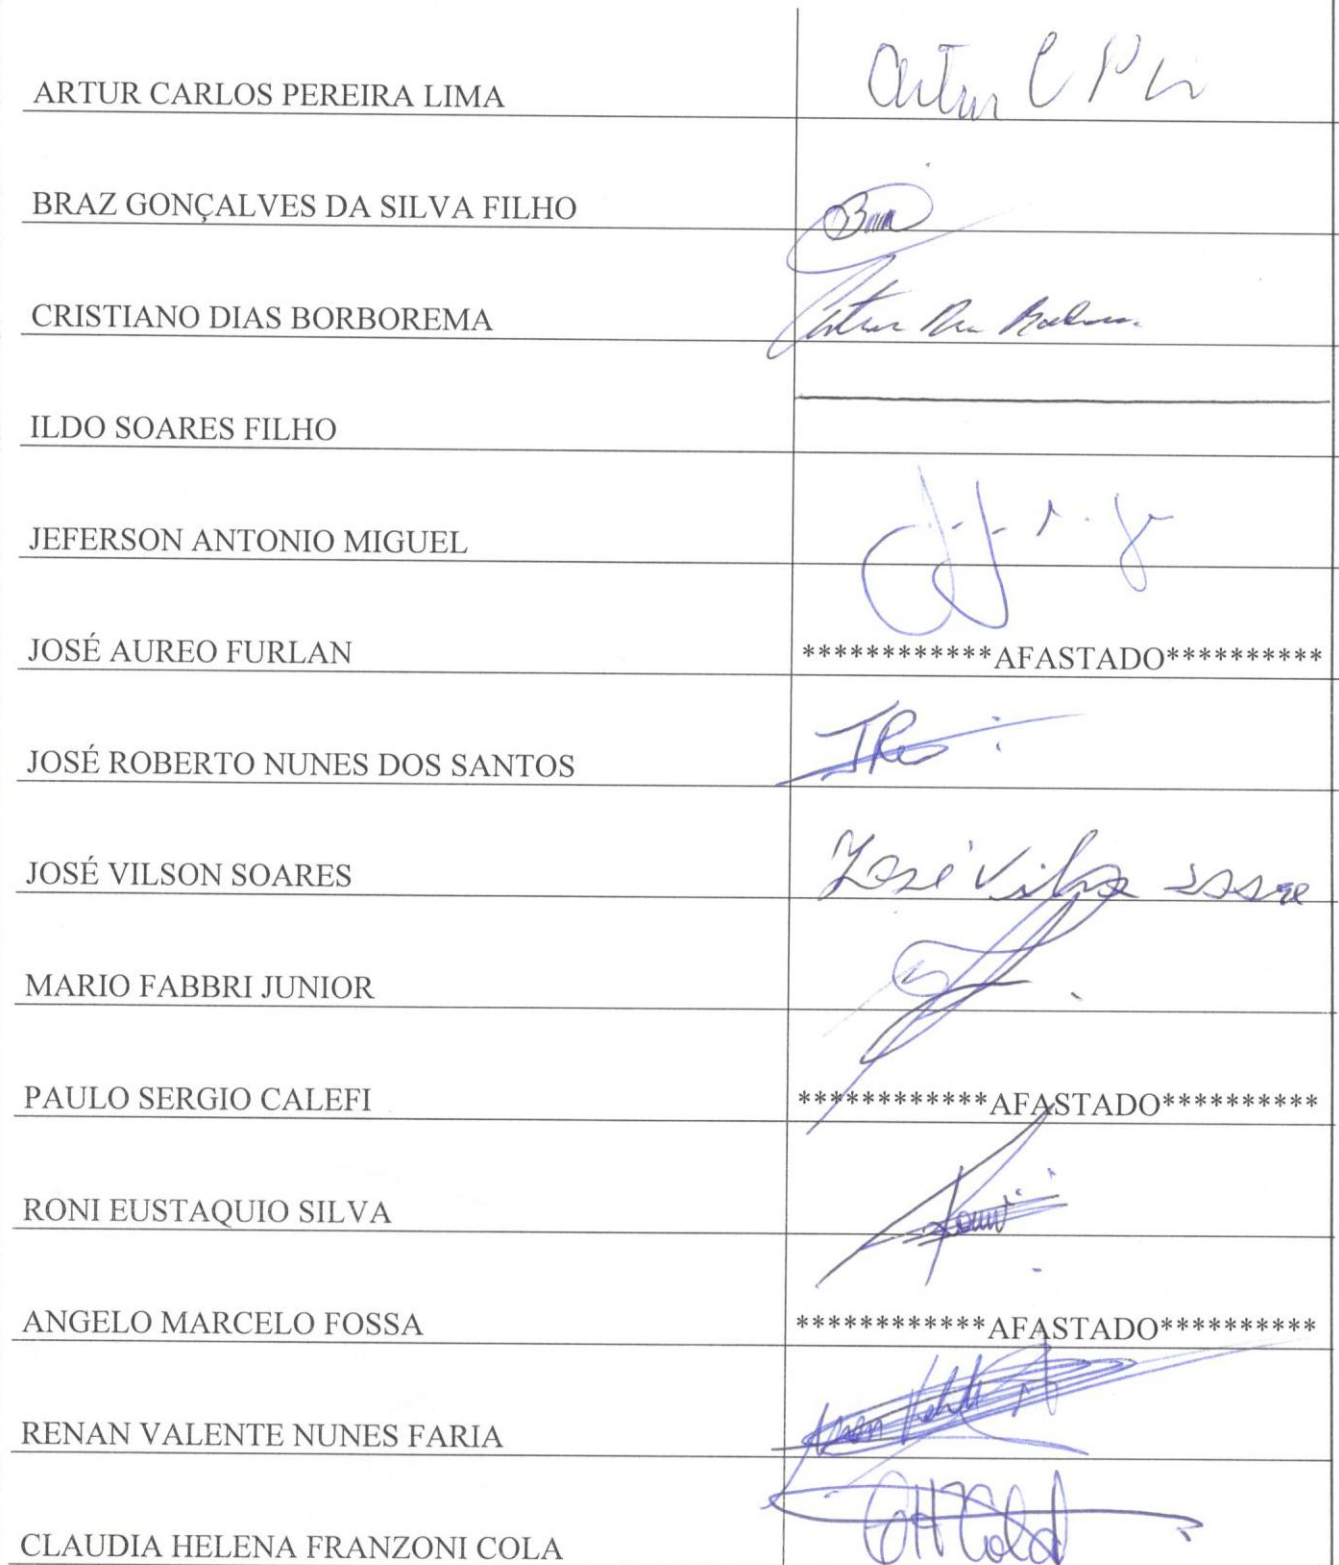 ARTUR CARLOS PEREIRA LIMA Artur C P Li
BRAZ GONÇALVES DA SILVA FILHO
CRISTIANO DIAS BORBOREMA
ILDO SOARES FILHO
JEFERSON ANTONIO MIGUEL
JOSÉ AUREO FURLAN ************AFASTADO**********
JOSÉ ROBERTO NUNES DOS SANTOS
JOSÉ VILSON SOARES José Vilson
MARIO FABBRI JUNIOR
PAULO SERGIO CALEFI ************AFASTADO**********
RONI EUSTAQUIO SILVA Roni
ANGELO MARCELO FOSSA ************AFASTADO**********
RENAN VALENTE NUNES FARIA
CLAUDIA HELENA FRANZONI COLA CHFCola